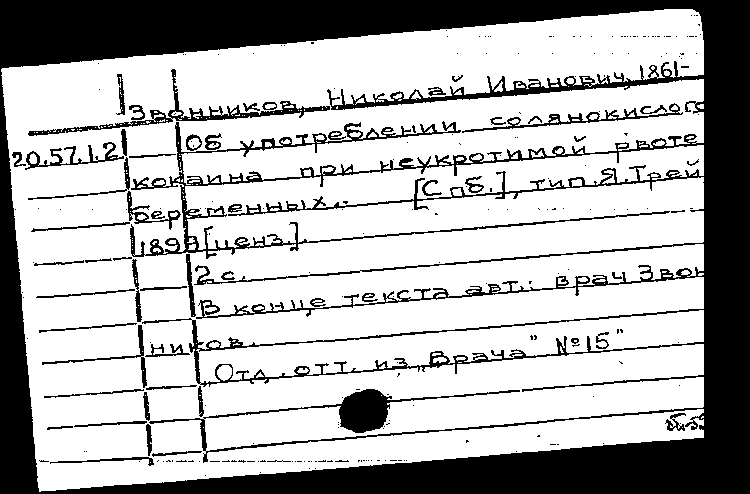 Звонников, Николай Иванович, 1861-
20.57.1.2 Об употреблении солянокислого
кокаина при неукротимой рвоте
беременных.. [Спб.], тип.Я.Трей
1899[ценз.].
2 с.
В конце текста авт.: врач Звон
ников.
"Отд. отт. из „Врача" №15"